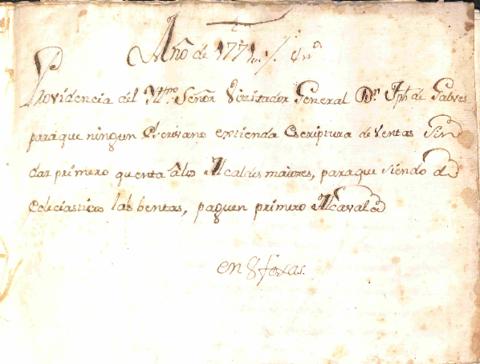 Año de 1771
Providencia del Yltmo Señor Vicitador General Dn Jph de Galves
para que ningun Escrivano extienda Escriptura de Ventas Sin
dar primero quenta álos Alcaldes maiores, para que siendo de
Eclesiastico las bentas, paguen primero Alcavala
en 8 foxas.